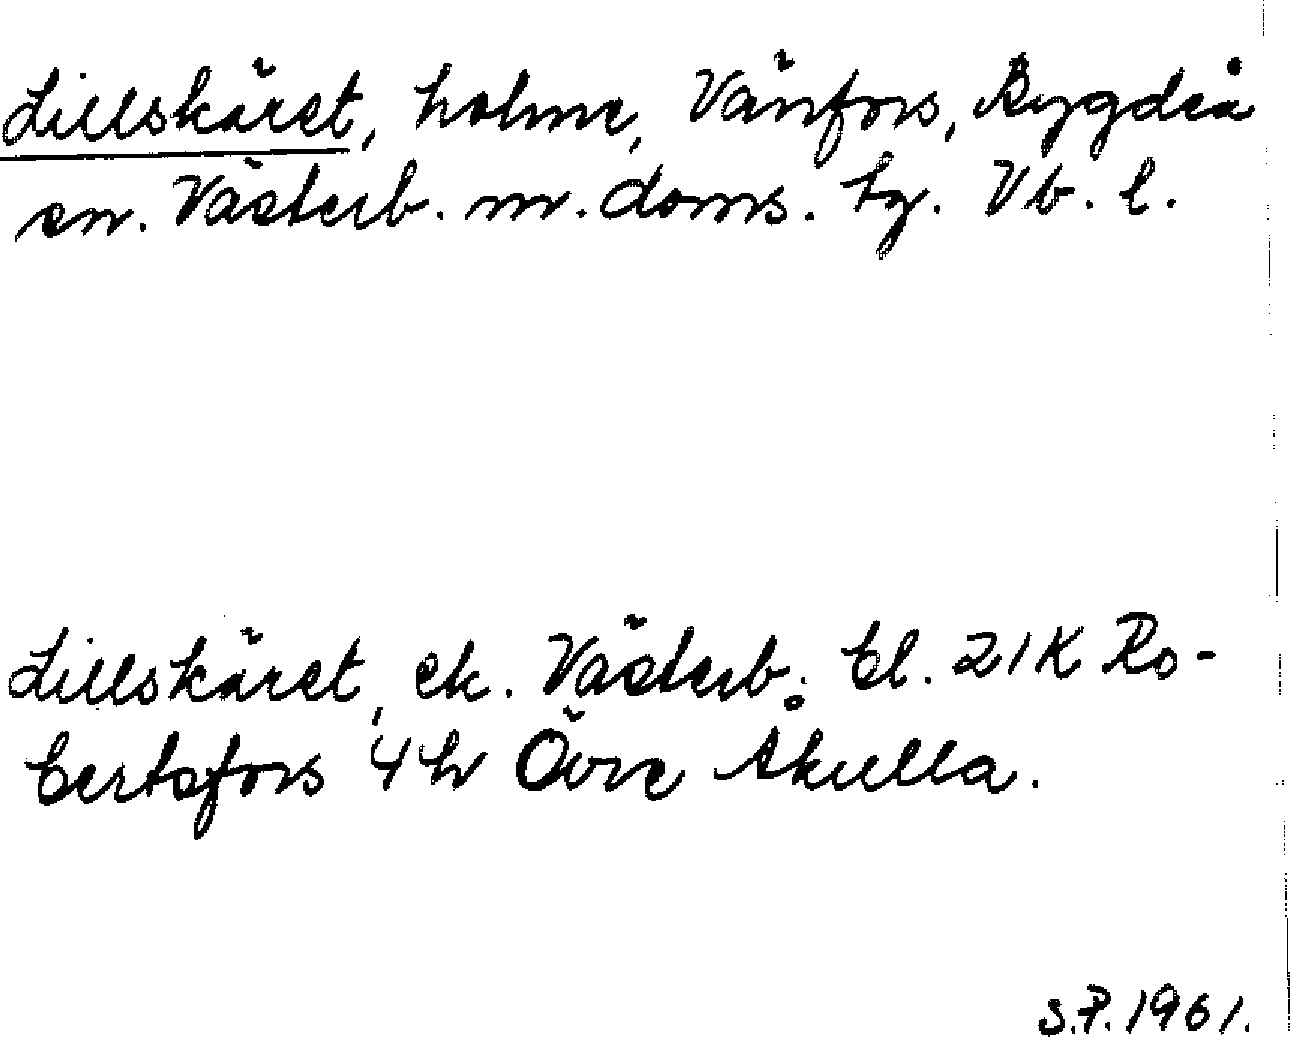 Lillskäret, holme, Vänfors, Bygdeå
sn. Västerb. m. doms. tg. Vb. l.
Lillskäret, ek. Västerb; bl. 21K Ro-
bertsfors 4h Övre Åkulla.
S.P. 1961.